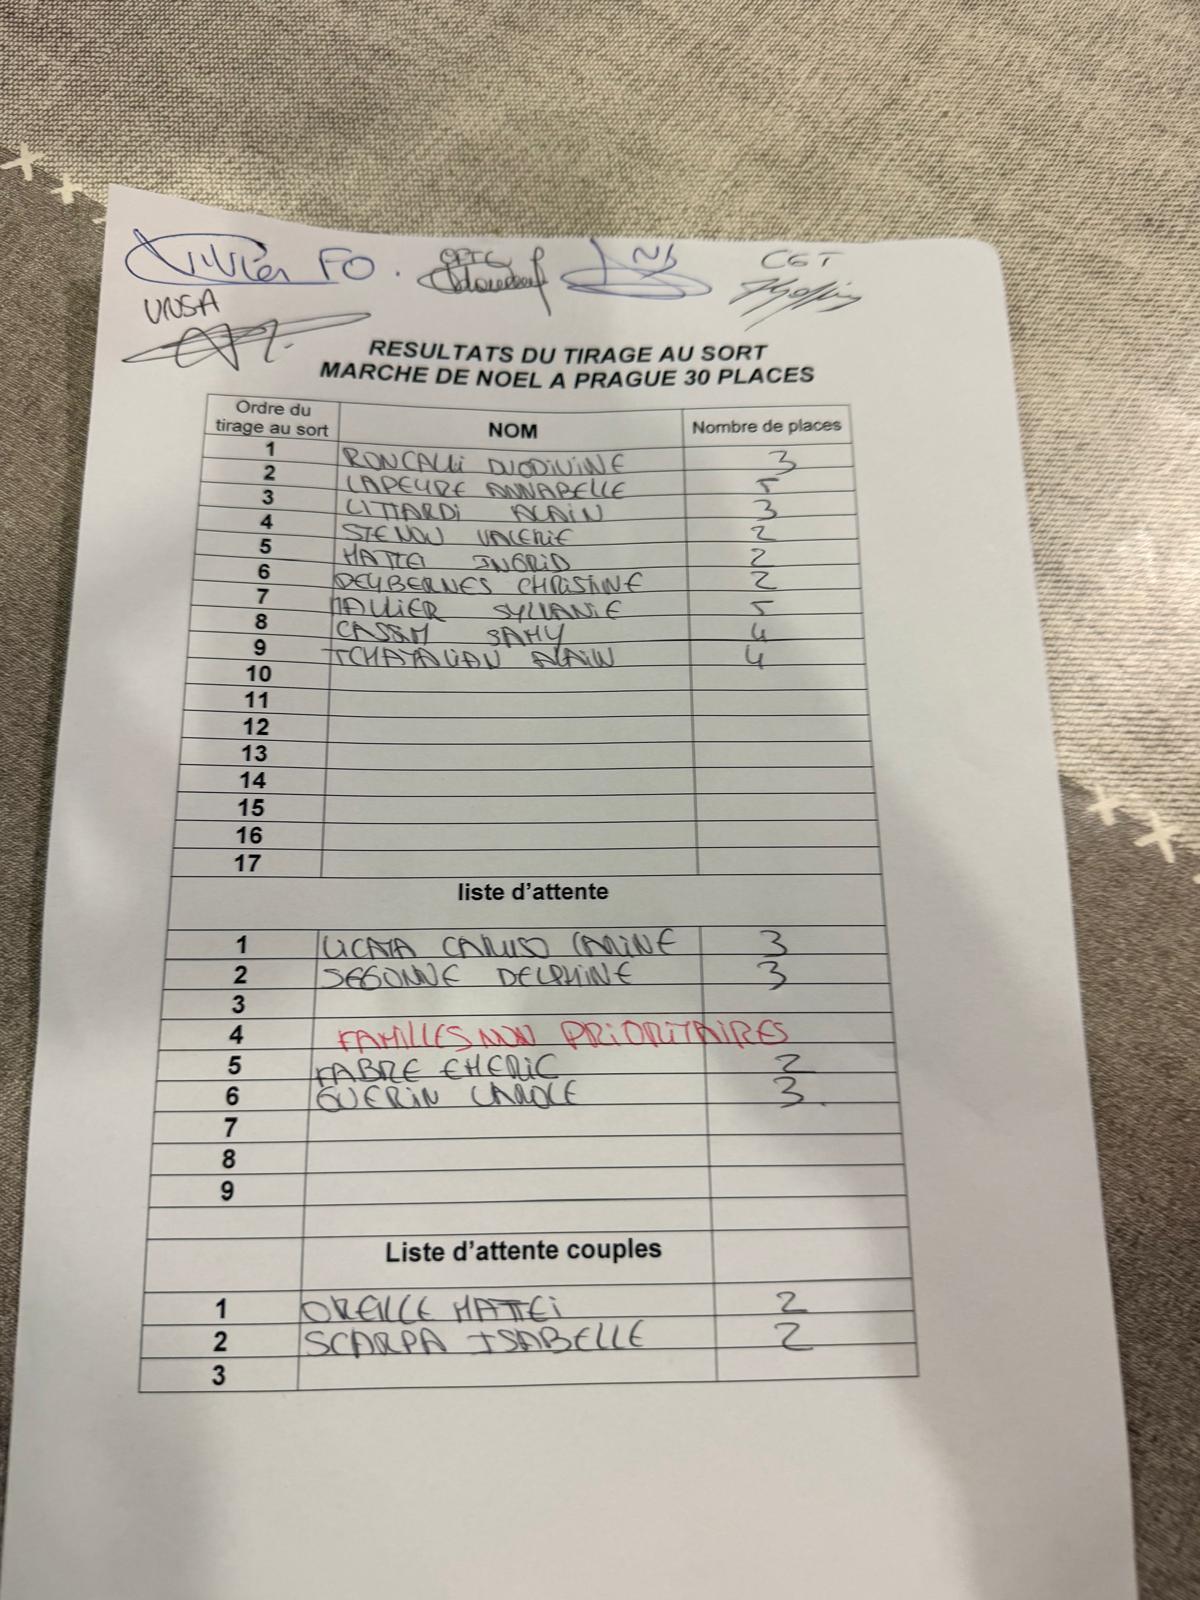 Olivier FO.
CFTC
CGT
UNSA
RESULTATS DU TIRAGE AU SORT
MARCHE DE NOEL A PRAGUE 30 PLACES
Ordre du tirage au sort NOM Nombre de places
1 RONCALLI LUDIVINE 3
2 LAPEYRE ANNABELLE 5
3 LITTARDI ALAIN 3
4 STENOU VALERIE 2
5 MATTEI INGRID 2
6 DEYBERNES CHRISTINE 2
7 SYLVANIE 5
8 CASSIM SAMY 4
9 ALAIN 4
10
11
12
13
14
15
16
17
liste d’attente
1 LICATA CARUSO CARINE 3
2 SEGONNE DELPHINE 3
3
4 FAMILLES NON PRIORITAIRES
5 FABRE EMERIC 2
6 GUERIN CAROLE 3
7
8
9
Liste d’attente couples
1 OREILLE MATTEI 2
2 SCARPA ISABELLE 2
3